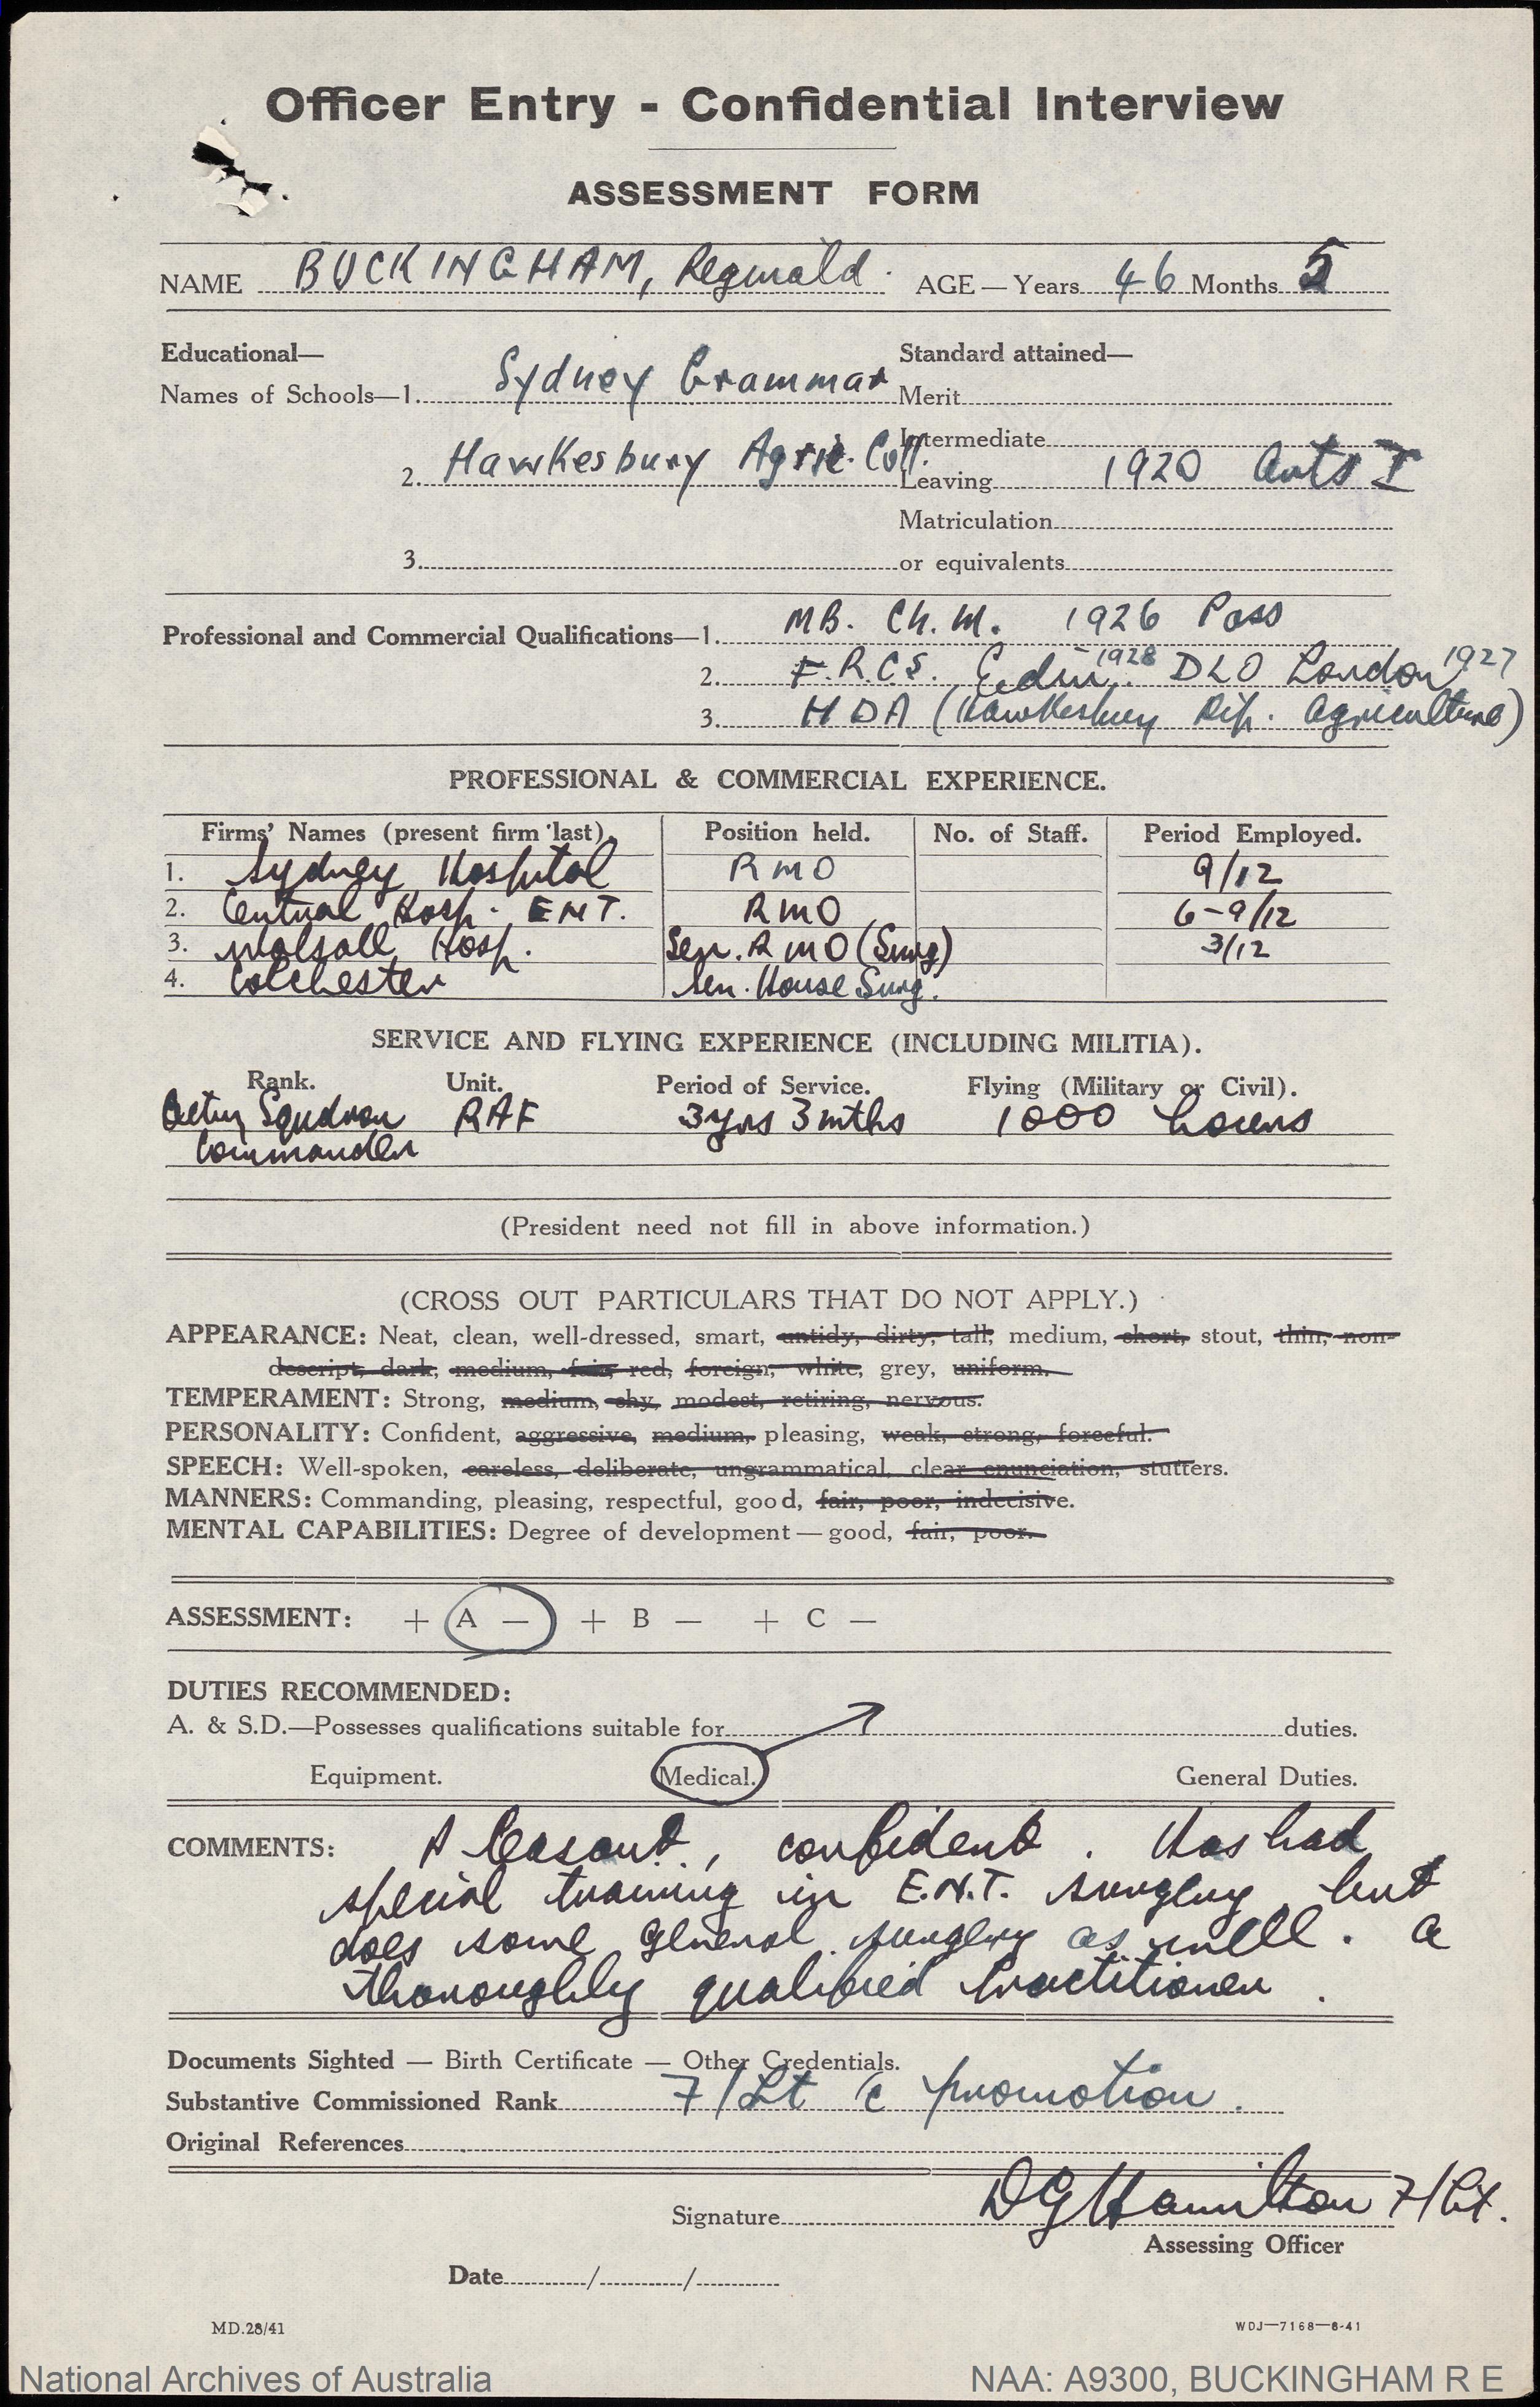 Officer Entry - Confidential Interview
ASSESSMENT FORM
NAME BUCKINGHAM, Reginald. AGE — Years 46 Months 5
Educational— Standard attained—
Names of Schools—1. Sydney Grammar Merit
Intermediate
2. Hawkesbury Agric. Coll. Leaving 1920 Arts I
Matriculation
3. or equivalents
Professional and Commercial Qualifications—1. MB. Ch. M. 1926 Pass
2. F.R.C.S. Edin. - 1928 DLO London 1927
3. HDA (Hawkesbury Dip. Agriculture)
PROFESSIONAL & COMMERCIAL EXPERIENCE.
Firms' Names (present firm last). Position held. No. of Staff. Period Employed.
1. Sydney Hospital RMO 9/12
2. Central Hosp. ENT. RMO 6-9/12
3. Walsall Hosp. Sen. RMO (Surg) 3/12
4. Colchester Sen. House Surg.
SERVICE AND FLYING EXPERIENCE (INCLUDING MILITIA).
Rank. Unit. Period of Service. Flying (Military or Civil).
Acting Squdron RAF 3 yrs 3 mths 1000 hours
Commander
(President need not fill in above information.)
(CROSS OUT PARTICULARS THAT DO NOT APPLY.)
APPEARANCE: Neat, clean, well-dressed, smart, untidy, dirty, tall, medium, short, stout, thin, non-
descript, dark, medium, fair, red, foreign, white, grey, uniform.
TEMPERAMENT: Strong, medium, shy, modest, retiring, nervous.
PERSONALITY: Confident, aggressive, medium, pleasing, weak, strong, forceful.
SPEECH: Well-spoken, careless, deliberate, ungrammatical, clear enunciation, stutters.
MANNERS: Commanding, pleasing, respectful, good, fair, poor, indecisive.
MENTAL CAPABILITIES: Degree of development — good, fair, poor.
ASSESSMENT: + A — + B — + C —
DUTIES RECOMMENDED:
A. & S.D.—Possesses qualifications suitable for duties.
Equipment. Medical. General Duties.
COMMENTS: Pleasant, confident. Has had
special training in E.N.T. surgery, but
does some general surgery as well. A
thoroughly qualified practitioner.
Documents Sighted — Birth Certificate — Other Credentials.
Substantive Commissioned Rank F/Lt c promotion.
Original References
Signature DG Hamilton F/Lt.
Assessing Officer
Date / /
MD.28/41 WDJ—7168—8-41
National Archives of Australia NAA: A9300, BUCKINGHAM R E